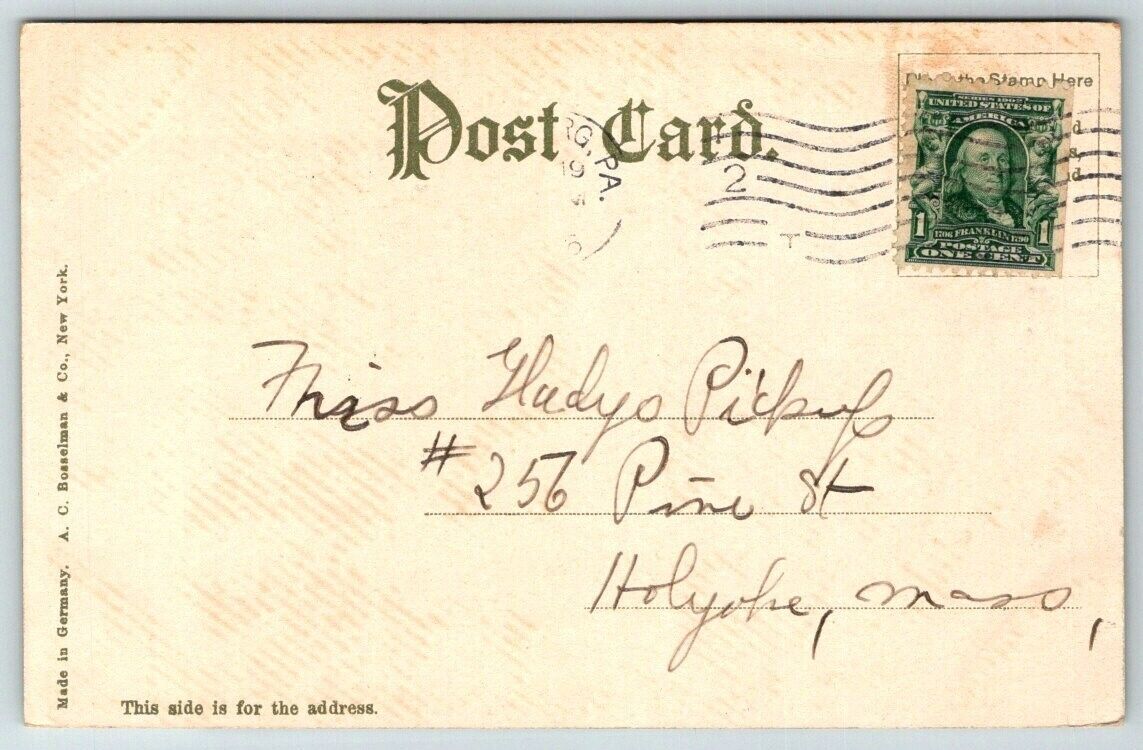 Post Card.
the Stamp Here
RG, PA.
19
2
T
SERIES 1902
UNITED STATES OF
AMERICA
1 1706 FRANKLIN 1790 1
POSTAGE
ONE CENT
Miss Gladys Pickup
# 256 Pine St
Holyoke, Mass,
Made in Germany. A. C. Bosselman & Co., New York.
This side is for the address.